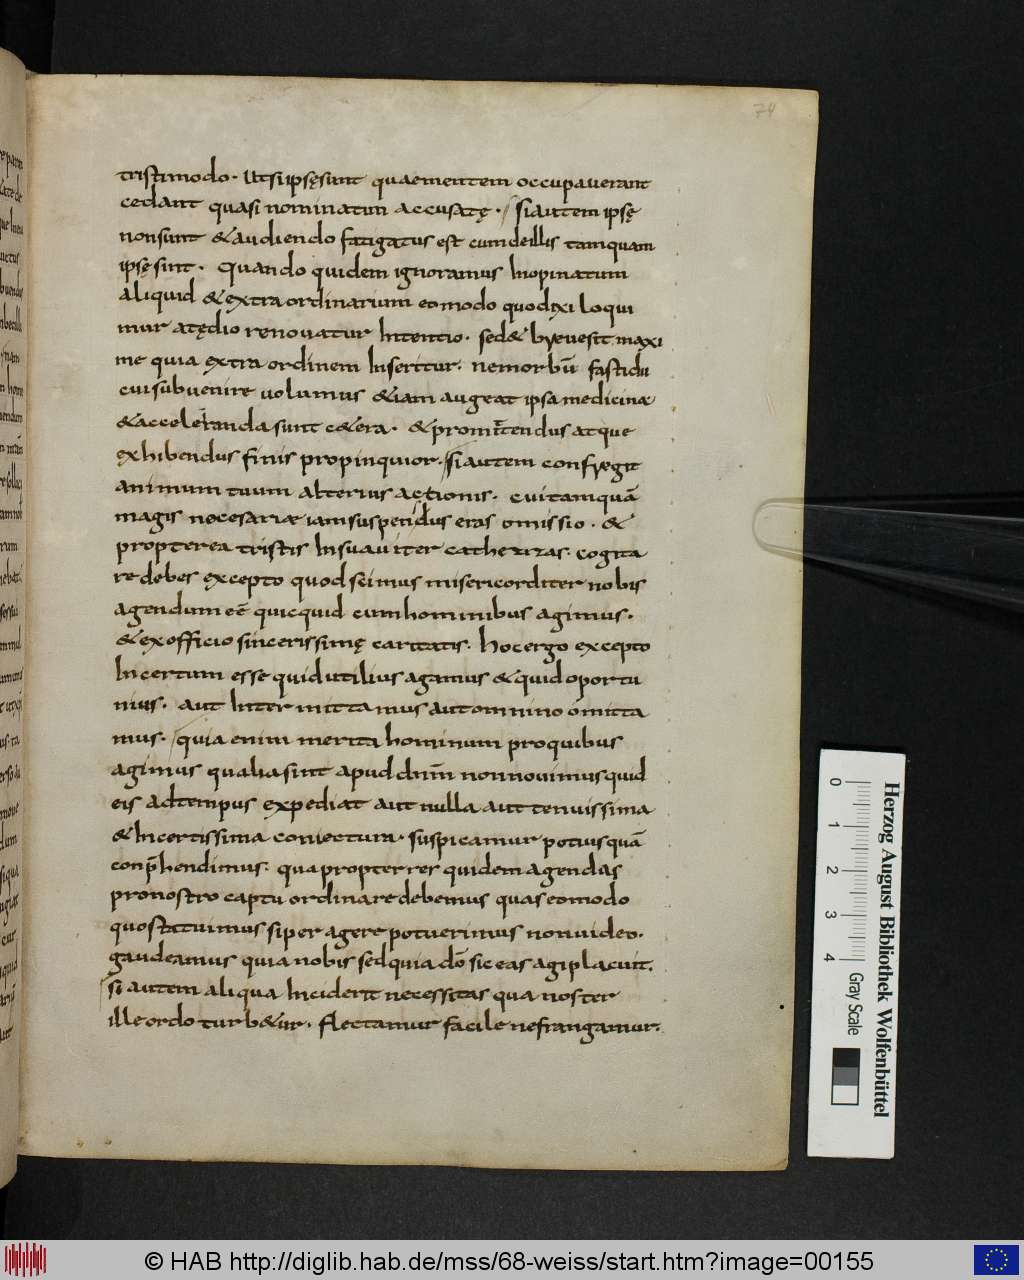 74
tristimodo. Utsiipsęsunt quaementem occupaverant
cedant quasi nominatim accusatę. Siautem ipsę
nonsunt & audiendo fatigatus est cumdeillis tamquam
ipsęsint. Quando quidem ignoramus Inopinatum
aliquid & extra ordinarium eomodo quodixi loqui
mur atędio renovatur Intentio. sed& brevesit maxi
me quia extra ordinem Inseritur. nemorbū fastidii
cuisubvenire volumus &iam augeat ipsa medicina
&acceleranda sunt c&era. & promittendus atque
exhibendus finis propinquior. Siautem confregit
animum tuum alterius actionis. cuitamquā
magis necesariæ iamsuspendendus eras omissio. &
propterea tristis Insuaviter cathezizas. cogita
re debes excepto quod scimus misericorditer nobis
agendum eē quicquid cumhominibus agimus.
& exofficio sincerissimę caritatis. hocergo excepto
Incertum esse quid utilius agamus & quid oportu
nius. aut Intermittamus aut omnino omitta
mus. quia enim merita hominum proquibus
agimus qualiasint apud dnm̄ nonnovimus quid
eis adtempus expediat aut nulla aut tenuissima
& Incertissima coniectura. suspicamur potiusquā
conp̄hendimus. quapropter res quidem agendas
pronostro captu ordinare debemus quas eomodo
quostatuimus siperagere potuerimus nonideo.
gaudeamus quia nobis sed quia dō sic eas agi placuit.
Si autem aliqua Inciderit necessitas qua noster
ille ordo turb&ur. flectamur facile ne frangamur.
0 1 2 3 4
Herzog August Bibliothek Wolfenbüttel
Gray Scale
© HAB http://diglib.hab.de/mss/68-weiss/start.htm?image=00155